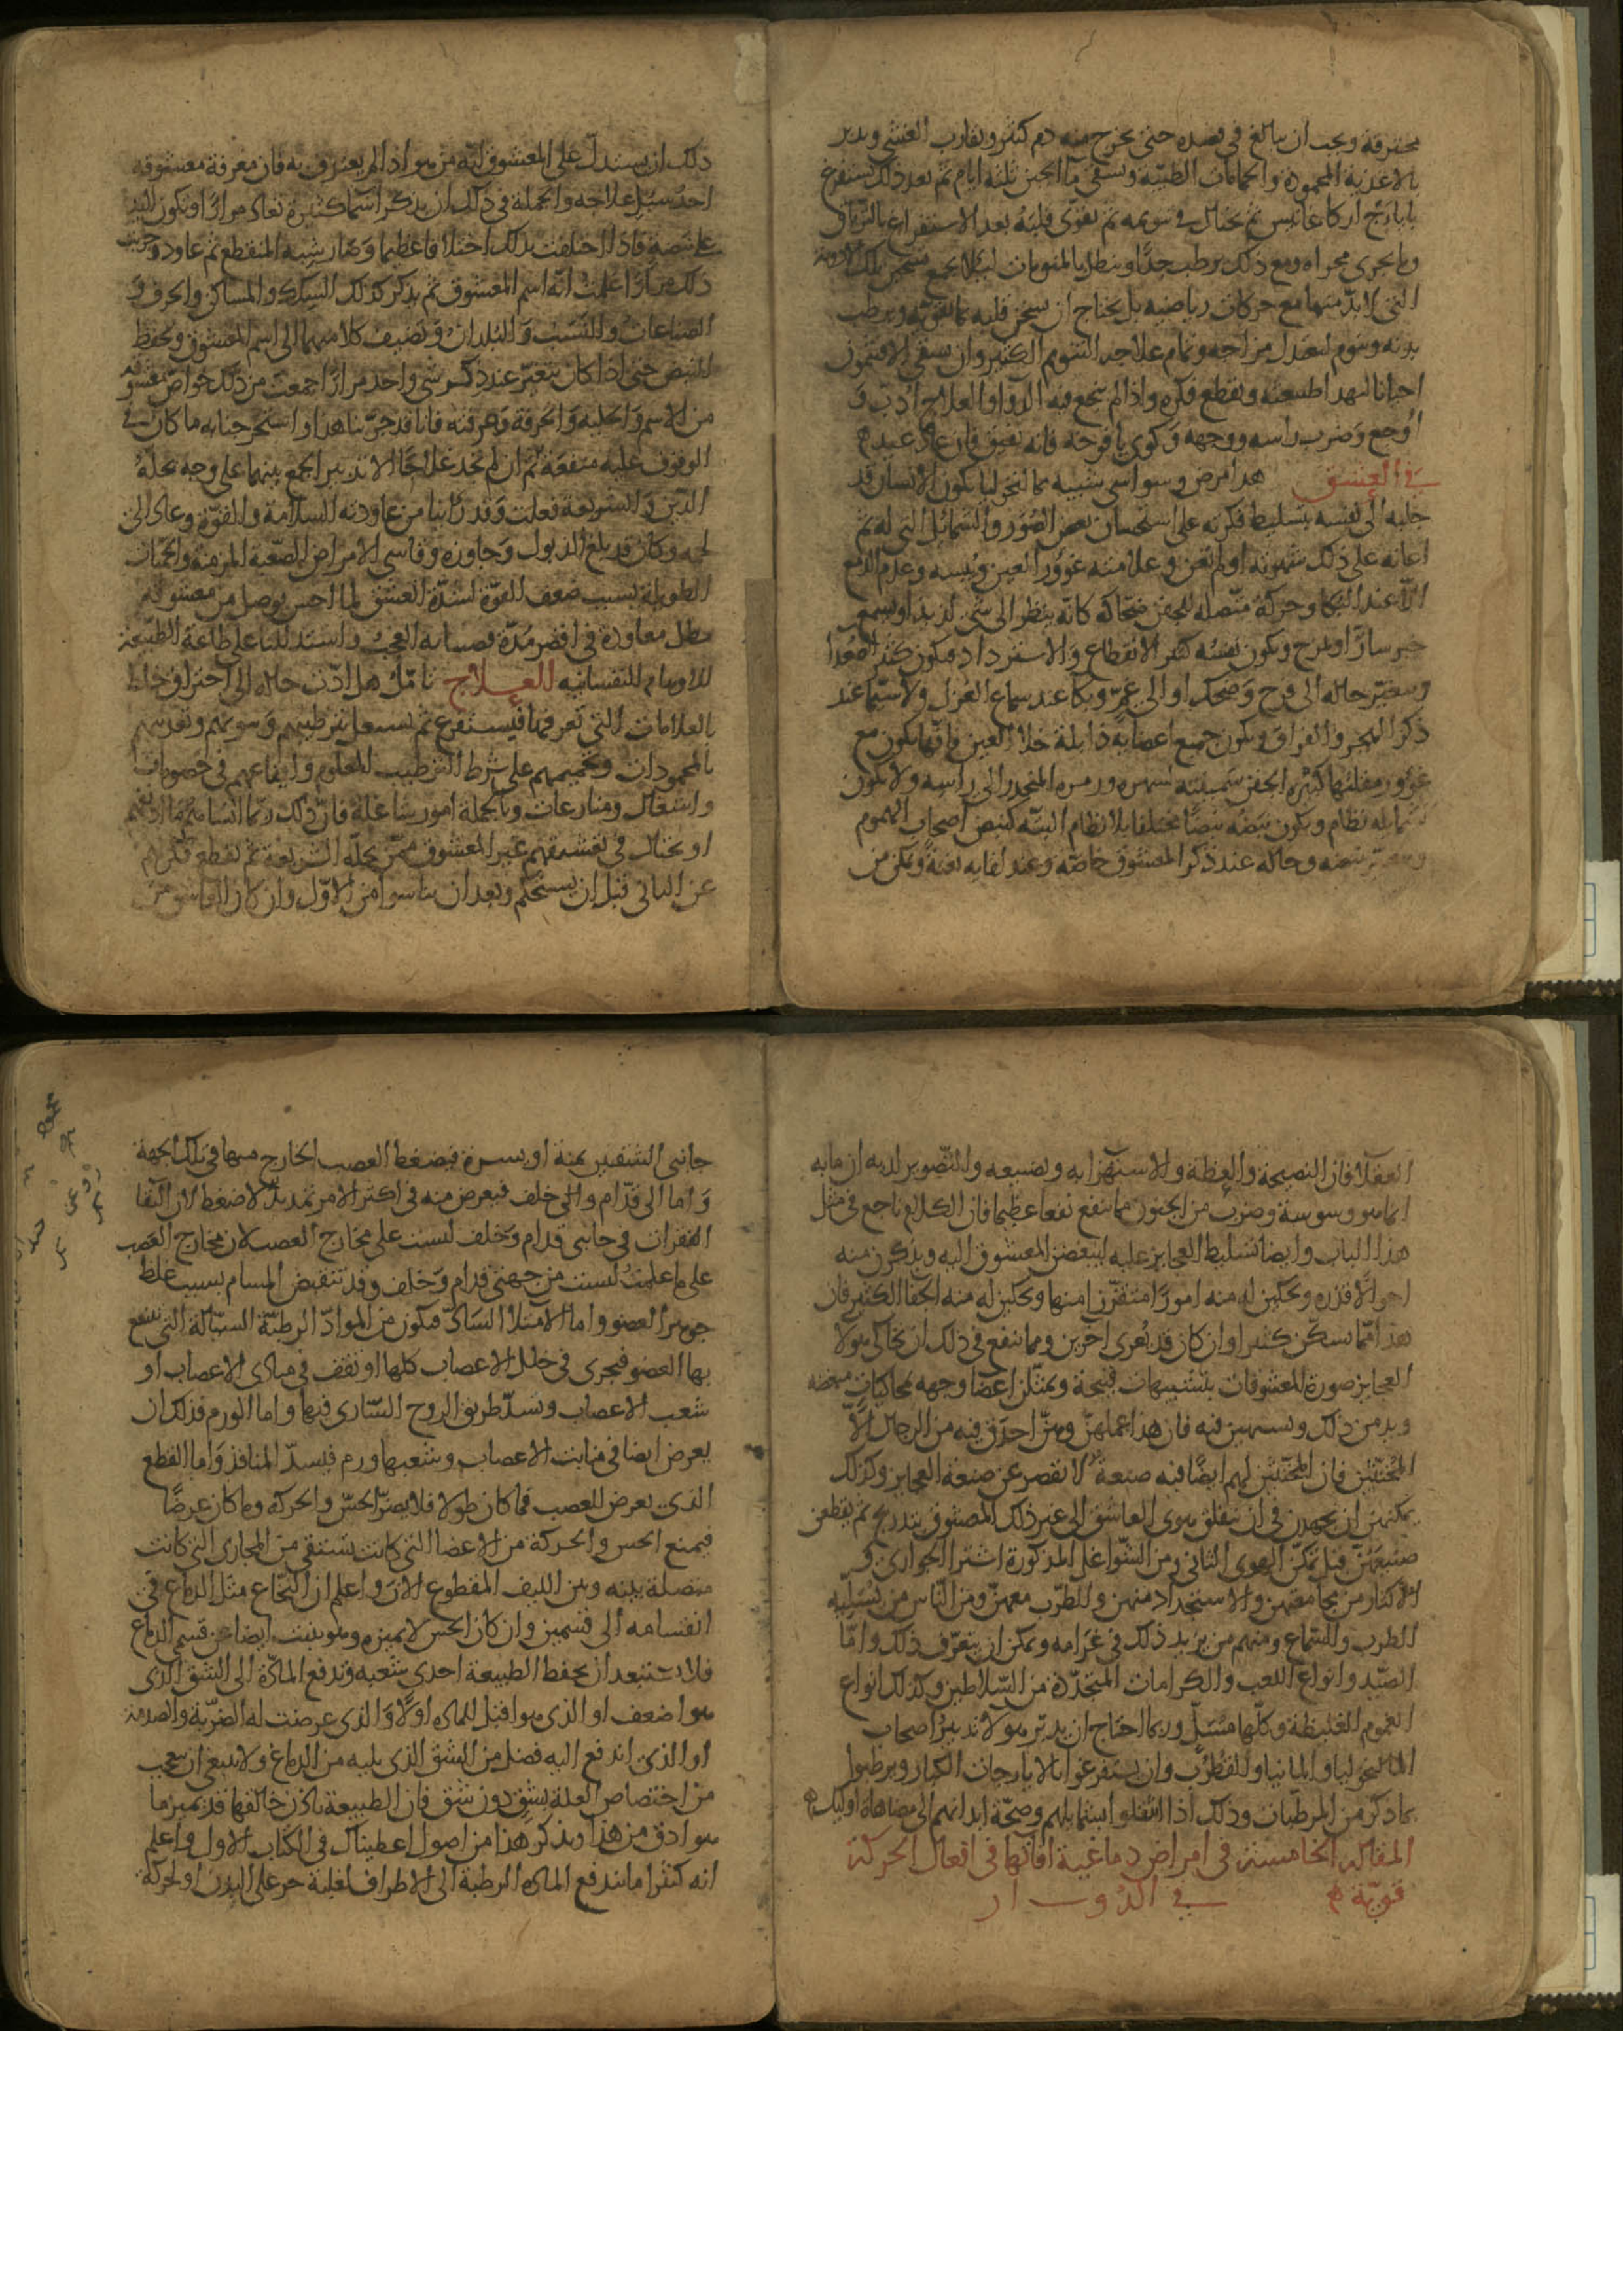 محترقة ويجب ان يبالغ في فصده حتى يخرج منه دم كثير ويقارب الغشي ويدبر
بالاغذية المحمودة والحمامات الطيبة ويسقى ما الجبن ثلثة ايام ثم بعد ذلك يستفرغ
بايارج اركاغانيس ثم يحتال في تنويمه ثم يقوى قلبه بعد الاستفراغ بالترياق
وما يجري مجراه ومع ذلك يرطب جدا وينطل بالمنومات ليلا يجمع تسخين تلك الادوية
التي لا بد منها مع حركات رياضية بل يحتاج ان يسخن قلبه بما يقويه ويرطب
بدنه وينوم ليعتدل مزاجه وتمام علاجه التنويم الكثير وان يسقى الافيثمون
احيانا لتهدا طبيعته ويقطع فكره واذا لم ينجع فيه الدوا والعلاج ادب و
اوجع وضرب راسه ووجهه وكوي يافوخه فانه يفيق فان عاد عيد
في العشق هذا مرض وسواسي شبيه بمالنخوليا يكون الانسان قد
جلبه الى نفسه بتسليط فكرته على استحسان بعض الصور والشمائل التي له ثم
اعانه على ذلك شهوته او لم تعن وعلامته غوور العين ويبسه وعدم الدمع
الا عند البكا وحركة متصلة للجفن ضحاكه كانه ينظر الى شي لذيذ او يسمع
خبر سارا او يمزح ويكون نفسه كثير الانقطاع والاسترداد فيكون كثير الصعدا
ويتغير حاله الى فرح وضحك او الى غم وبكا عند سماع الغزل ولا سيما عند
ذكر الهجر والفراق ويكون جميع اعضايه ذابلة خلا العين فانها يكون مع
غوور مقلتها كبيرة الجفن سمينته لسهره المنحدر الى راسه ولا يكون
لشمايله نظام ويكون نبضه نبضا مختلفا بلا نظام البتة كنبض اصحاب الهموم
ويتغير نبضه وحاله عند ذكر المعشوق خاصة وعند لقايه بغتة ويمكن من
ذلك ان يستدل على المعشوق انه من هو اذا لم يعترف به فان معرفة معشوقه
احد سبل علاجه والحيلة في ذلك ان يذكر اسما كثيرة تعاد مرارا ويكون اليد
على نبضه فاذا اختلف بذلك اختلافا عظيما وصار شبه المنقطع ثم عاود وجربت
ذلك مرارا علمت انه اسم المعشوق ثم يذكر كذلك السكك والمساكن والحرف و
الصناعات والنسب والبلدان وتضيف كلا منها الى اسم المعشوق ويحفظ
النبض حتى اذا كان يتغير عند ذكر شي واحد مرارا جمعت من ذلك خواص معشوقه
من الاسم والحلية والحرفة وعرفته فانا قد جربنا هذا واستخرجنا به ما كان في
الوقوف عليه منفعة ثم ان لم تجد علاجا الا تدبير الجمع بينهما على وجه يحله
الدين والشريعة فعلت وقد راينا من عاودته السلامة والقوة وعاد الى
لحمه وكان قد بلغ الذبول وجاوزه وقاسى الامراض الصعبة المزمنة والحميات
الطويلة بسبب ضعف القوة لشدة العشق لما احس بوصل من معشوقه
بعد مطل معاودة في اقصر مدة فضينا به العجب واستدللنا على طاعة الطبيعة
للاوهام النفسانية العلاج تامل هل ادت حاله الى احتراق خلط
بالعلامات التي تعرفها فيستفرغ ثم يشتغل بترطيبهم وتنويمهم وتغذيتهم
بالمحمودات وتحميمهم على شرط الترطيب المعلوم وايقاعهم في خصومات
واشتغال ومنازعات وبالجملة امور شاغلة فان ذلك ربما انساهم ما ادنفهم
او يحتال في تعشيقهم غير المعشوق ممن تحله الشريعة ثم يقطع فكرهم
عن الثاني قبل ان يستحكم وبعد ان يتناسوا من الاول وان كان العاشق من
العقلا فان النصيحة والعظة والاستهزا به وتعنيفه والتصوير لديه ان ما به
انما هو وسوسة وضرب من الجنون مما ينفع نفعا عظيما فان الكلام ناجع في مثل
هذا الباب وايضا تسليط العجايز عليه ليبغضن المعشوق اليه ويذكرن منه
احوالا قذرة ويحكين له منه امورا متقززا منها ويحكين له منه الجفا الكثير فان
هذا مما يسكن كثيرا وان كان قد يغري اخرين ومما ينفع في ذلك ان تحاكي هولا
العجايز صورة المعشوقات بتشبيهات قبيحة ويمثلن اعضا وجهه بمحاكيات مبغضة
ويدمن ذلك ويسهبن فيه فان هذا عملهن وهن احذق فيه من الرجال الا
المخنثين فان المخنثين لهم ايضا فيه صنعة لا تقصر عن صنعة العجايز وكذلك
يمكنهن ان يجهدن في ان ينقلن هوى العاشق الى غير ذلك المعشوق بتدريج ثم يقطعن
صنيعهن قبل تمكن الهوى الثاني ومن الشواغل المذكورة اشترا الجواري و
الاكثار من مجامعتهن والاستجداد منهن والطرب معهن ومن الناس من يسليه
الطرب والسماع ومنهم من يزيد ذلك في غرامه ويمكن ان يتعرف ذلك واما
الصيد وانواع اللعب والكرامات المتجددة من السلاطين وكذلك انواع
الغموم الغليظة وكلها مسل وربما احتاج ان يدبر هولا تدبير اصحاب
المالنخوليا والمانيا والقطرب وان يستفرغوا بالايارجات الكبار ويرطبوا
بما ذكر من المرطبات وذلك اذا انتقلوا بشمايلهم وسحنة ابدانهم الى مضاهاة اوليك
المقالة الخامسة في امراض دماغية افاتها في افعال الحركة
قوية في الدوار
جانبي الشقين يمنة او يسرة فيضغط العصب الخارج منها في تلك الجهة
واما الى قدام والى خلف فيعرض منه في اكثر الامر تمديد لا ضغط لان التقا
الفقرات في جانبي قدام وخلف ليست على مخارج العصب لان مخارج العصب
على ما علمت ليست من جهتي قدام وخلف وقد تنقبض المسام بسبب غلظ
جوهر العضو واما الامتلا الساد فيكون من المواد الرطبة السيالة التي ينتقع
بها العضو فيجري في خلل الاعصاب كلها او تقف في مبادي الاعصاب او
شعب الاعصاب وتسد طريق الروح الساري فيها واما الورم فذلك ان
يعرض ايضا في منابت الاعصاب وشعبها ورم فيسد المنافذ واما القطع
الذي يعرض للعصب فما كان طولا فلا يضر الحس والحركة وما كان عرضا
فيمنع الحس والحركة من الاعضا التي كانت تستقي من المجاري التي كانت
متصلة بينه وبين الليف المقطوع الان واعلم ان النخاع مثل الدماغ في
انقسامه الى قسمين وان كان الحس لا يميزه وهو ينبت ايضا عن قسمي الدماغ
فلا تستبعد ان يحفظ الطبيعة احدى شعبه وتدفع المادة الى الشق الذي
هو اضعف او الذي هو اقبل للمادة اولا والذي عرضت له الضربة والصدمة
او الذي اندفع اليه فضل من الشق الذي يليه من الدماغ ولا ينبغي ان يتعجب
من اختصاص العلة بشق دون شق فان الطبيعة باذن خالقها قد تميز ما
هو ادق من هذا ويذكر هذا من اصول اعطيناك في الكتاب الاول واعلم
انه كثيرا ما تندفع المادة الرطبة الى الاطراف لغلبة حر على البدن او لحركة